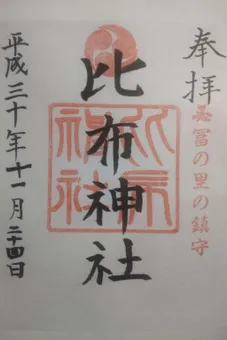 奉拝
北冨の里の鎮守
比布神社
比布神社
平成三十年十一月二十四日